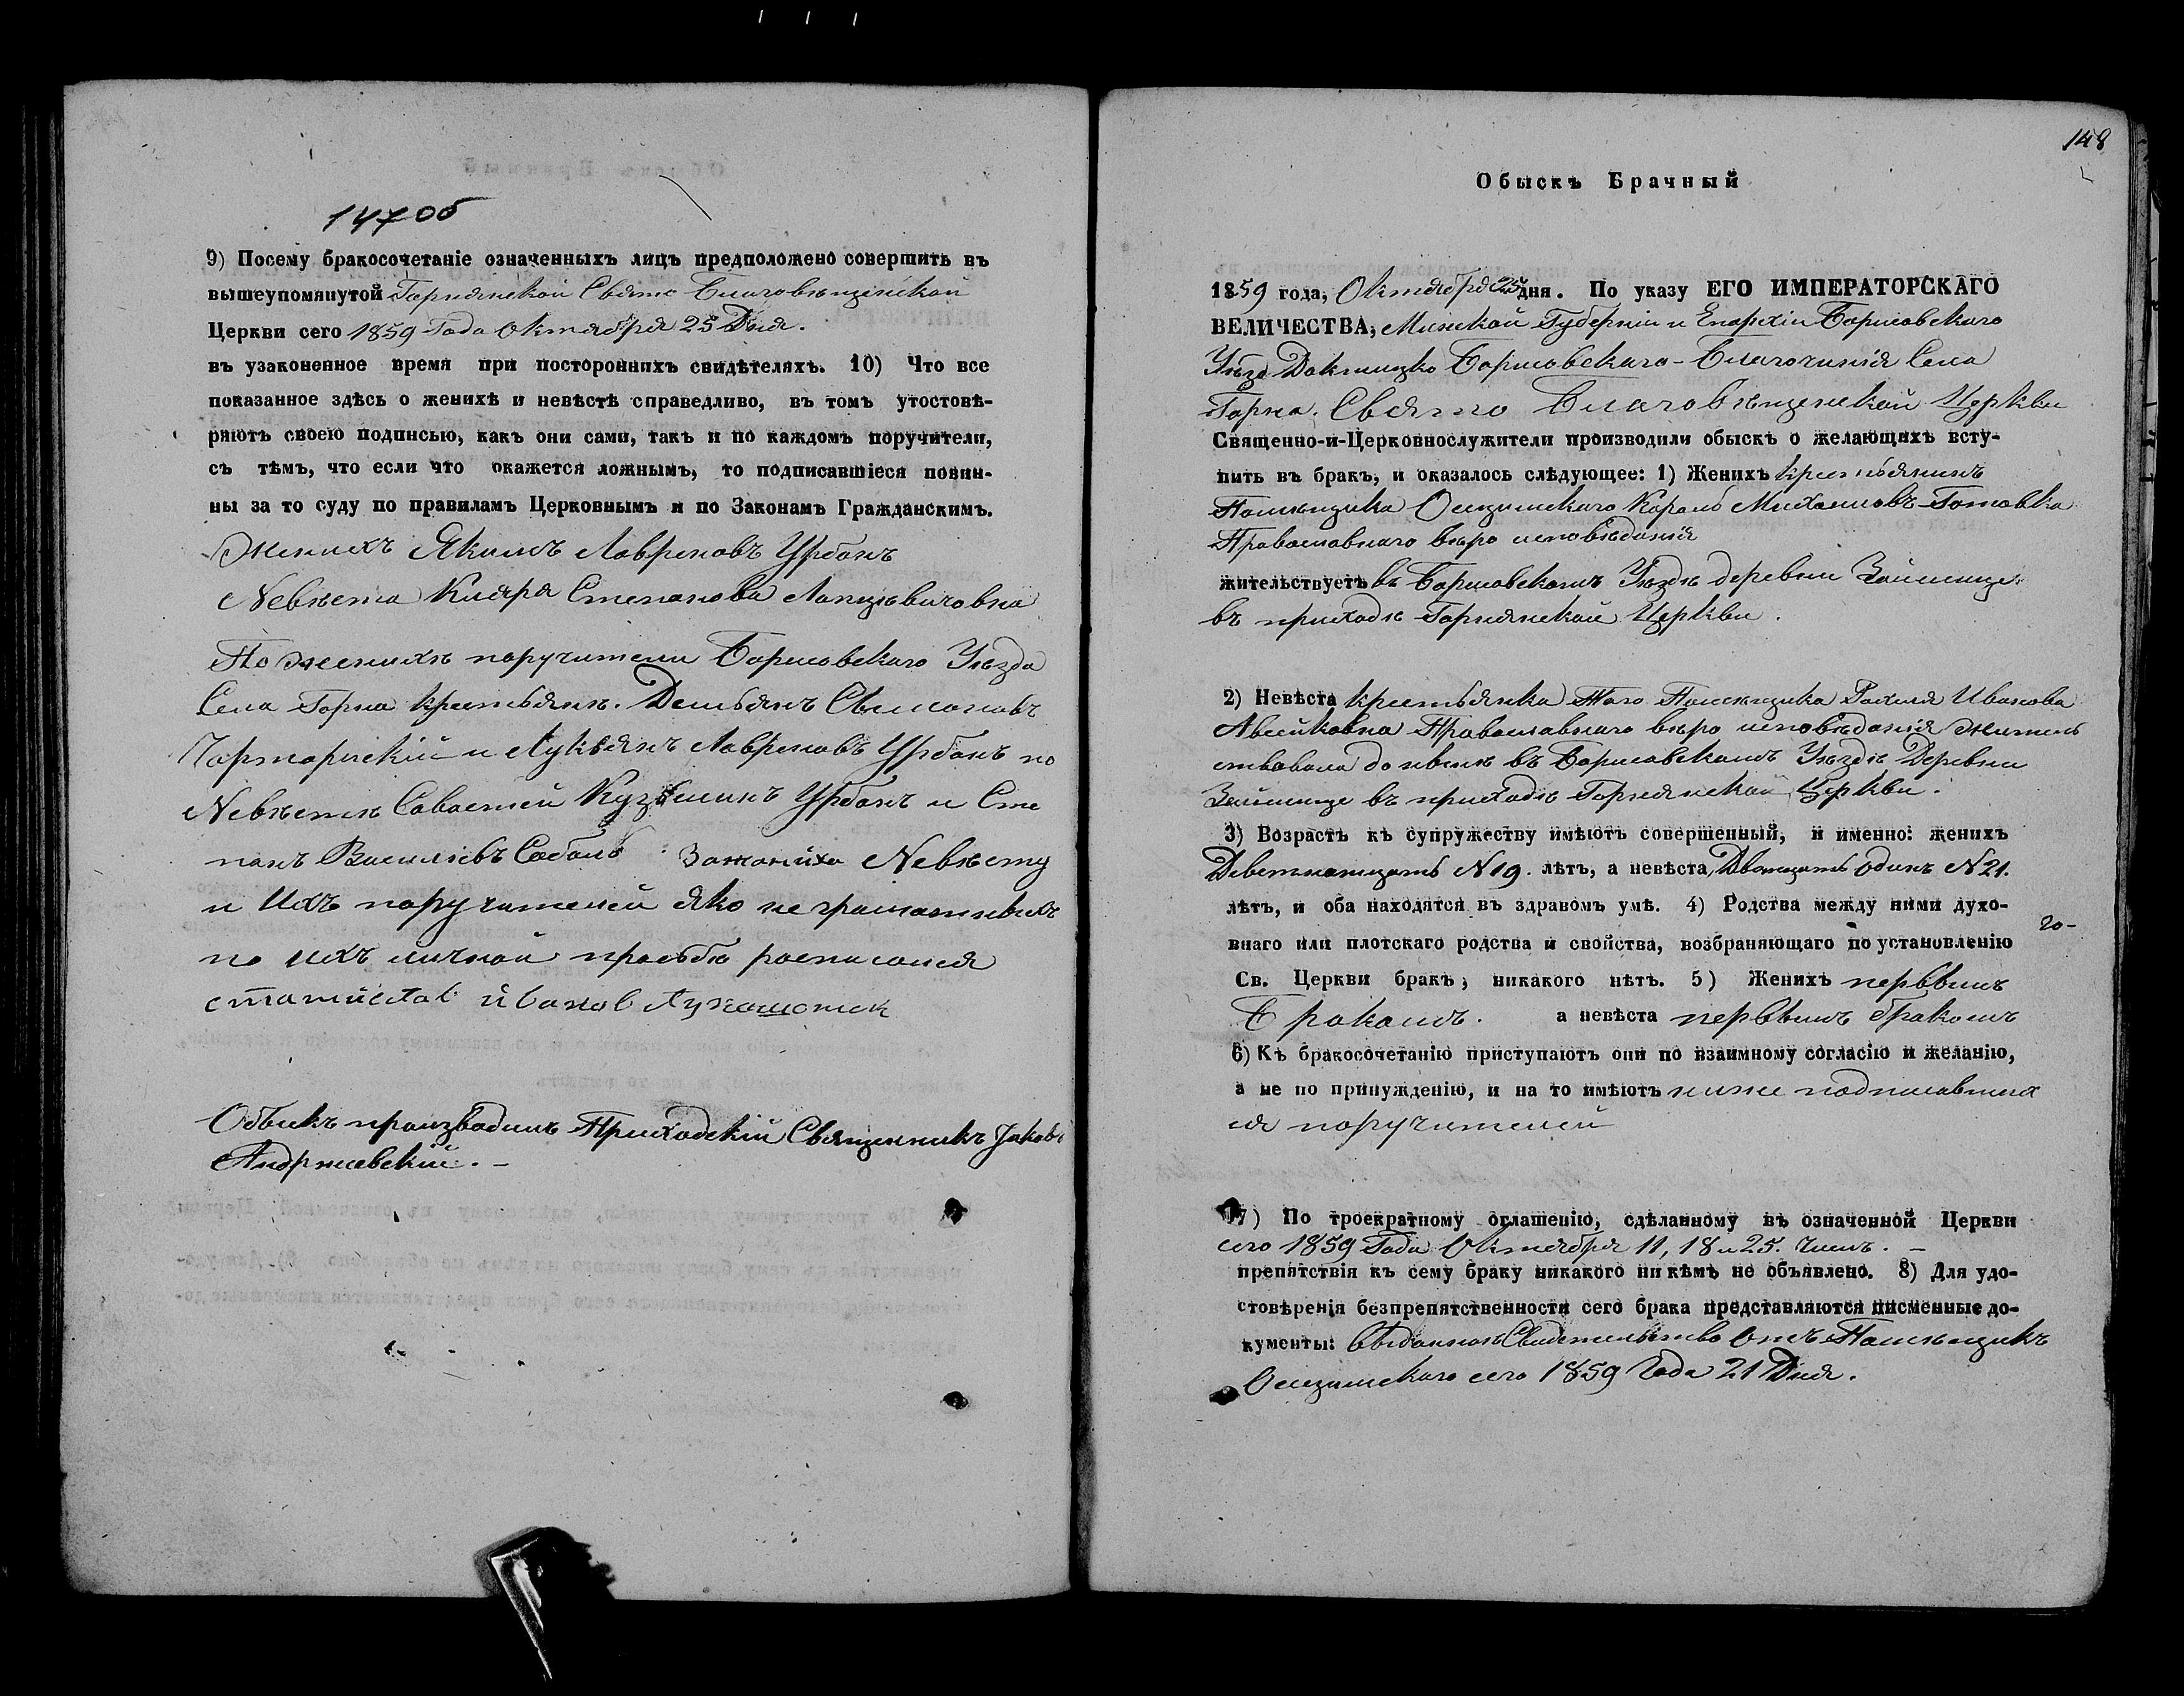 147 об
9) Посему бракосочетаніе означенныхъ лицъ предположено совершить въ
вышеупомянутой Горнянской Свято Благовѣщенской
Церкви сего 1859 Года Октября 25 Дня.
въ узаконенное время при постороннихъ свидѣтеляхъ. 10) Что все
показанное здѣсь о женихѣ и невѣстѣ справедливо, въ томъ утостовѣ-
ряютъ своею подписью, какъ они сами, такъ и по каждомъ поручители,
съ тѣмъ, что если что окажется ложнымъ, то подписавшіеся повин-
ны за то суду по правиламъ Церковнымъ и по Законамъ Гражданскимъ.
Женихъ Якимъ Лавреновъ Урбанъ
Невѣста Киляря Степанова Лапцѣвичовна
По женихѣ поручители Борисовскаго Уѣзда
Села Горна Крестьянѣ. Демьянъ
и Лукьянъ Лавреновъ Урбанъ по
Невѣстѣ Савастей Кузьминъ Урбанъ и Сте
панъ Васильевъ Соболь За жениха Невѣсту
и Ихъ поручителей яко неграмотныхъ
по ихъ личной прозьбѣ росписался
Иванов
Обыскъ производилъ Приходскій Священникъ Іаковъ
Андржиевскій. -
148
Обыскъ Брачный
1859 года, Октября 25 дня. По указу ЕГО ИМПЕРАТОРСКАГО
ВЕЛИЧЕСТВА, Минской Губерніи и Епархіи Борисовскаго
Уѣзд Докшицко Борисовскаго - Благочинія Села
Горна. Свято Благовѣщенской Церкви
Священно-и-Церковнослужители производили обыскъ о желающихъ всту-
пить въ бракъ, и оказалось слѣдующее: 1) Женихъ крестьянинъ
Помѣщика Осецимскаго Кароль Михаиловъ Готовка
Православнаго вѣро исповѣданія
жительствуетъ въ Борисовскомъ Уѣздѣ деревни Замшице
въ приходѣ Горнянской Церкви.
2) Невѣста крестьянка Того Помѣщика Рахиля Иванова
Авсейковна Православнаго вѣро исповѣданія житель
ствовала до нынѣ въ Борисовскомъ Уѣздѣ Деревни
Замшице въ приходѣ Горнянской Церкви.
3) Возрастъ къ супружеству имѣютъ совершенный, и именно: женихъ
Деветнатцать N 19. лѣтъ, а невѣста, Дватцать одинъ N 21.
лѣтъ, и оба находятся въ здравомъ умѣ. 4) Родства между ними духо-
внаго или плотскаго родства и свойства, возбраняющаго по установленію
го-
Св. Церкви бракъ, никакого нѣтъ. 5) Женихъ перввымъ
Бракомъ. а невѣста перввымъ бракомъ
6) Къ бракосочетанію приступаютъ они по взаимному согласію и желанію,
а не по принужденію, и на то имѣютъ ниже подписавших
ся поручителей
7) По троекратному оглашенію, сдѣланному въ означенной Церкви
сего 1859 Года Октября 11, 18 и 25. Числъ. -
препятствія къ сему браку никакого ни кѣмъ не объявлено. 8) Для удо-
стовѣренія безпрепятственности сего брака представляются писменные до-
кументы: Свидетельство Отъ Помѣщикъ
Осецимскаго сего 1859 Года 21 Дня.